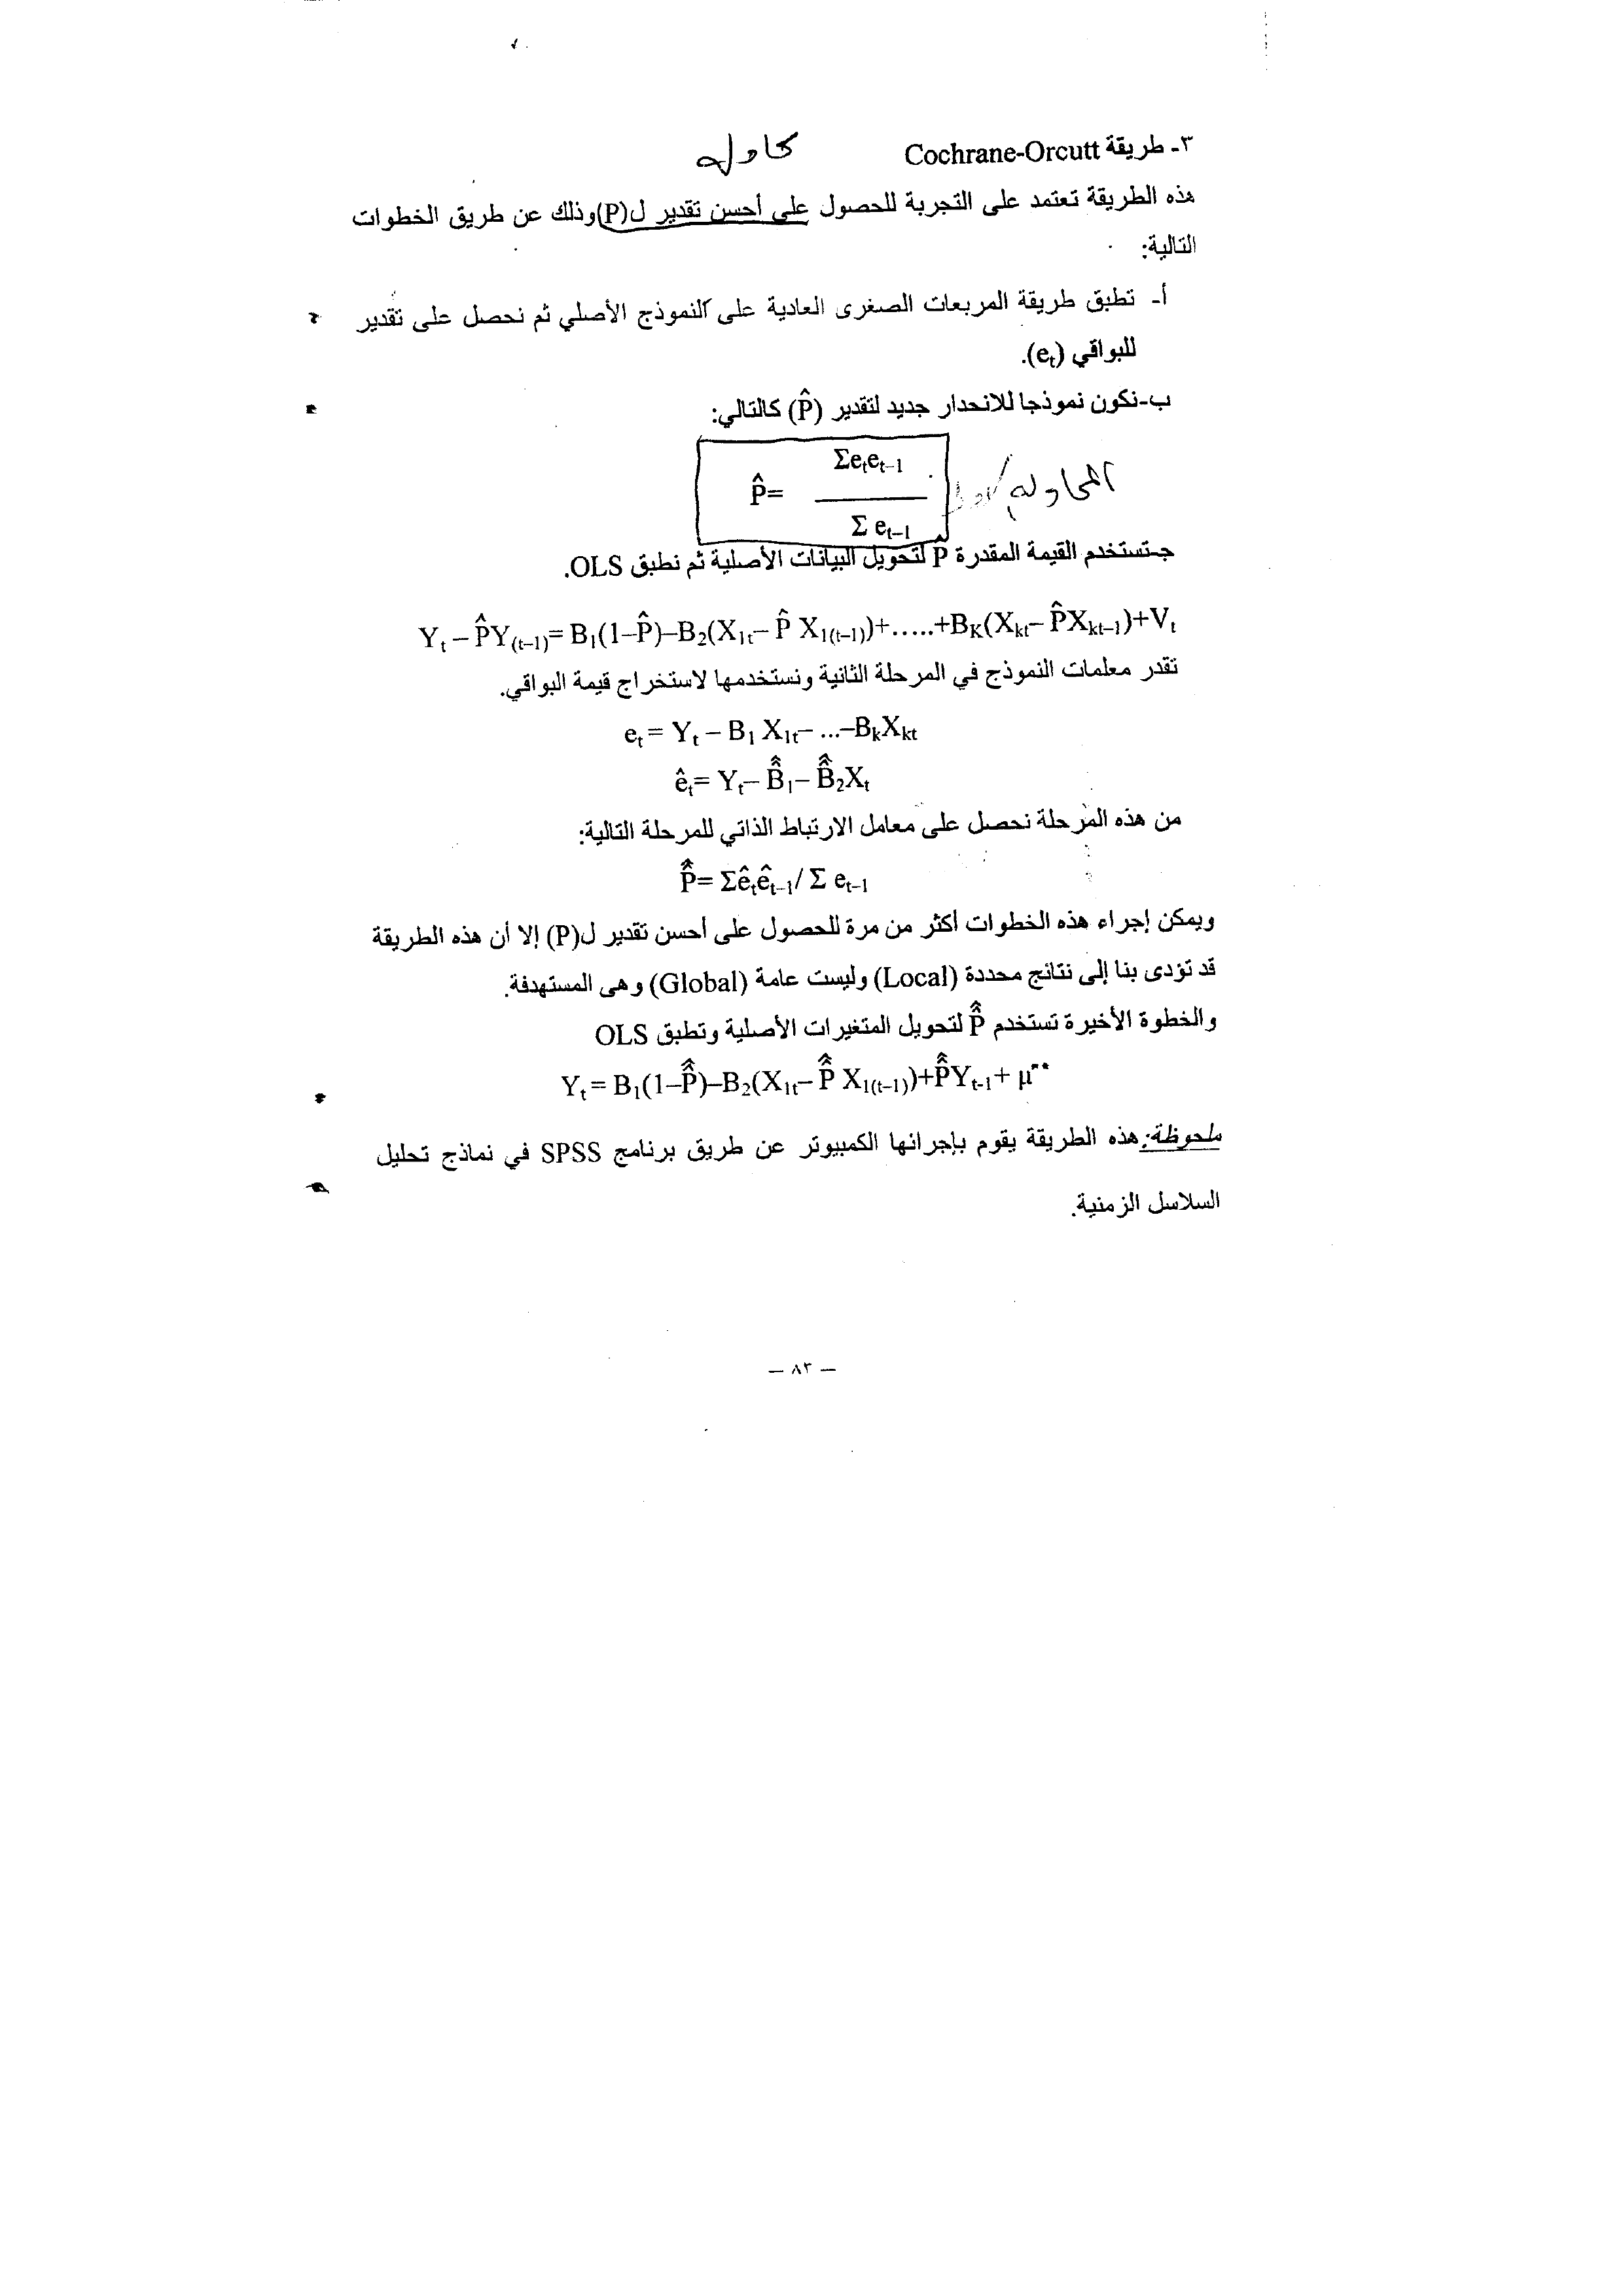 ٣- طريقة Cochrane-Orcutt محاوله
هذه الطريقة تعتمد على التجربة للحصول على أحسن تقدير ل(P)وذلك عن طريق الخطوات
التالية:
أ- تطبق طريقة المربعات الصغرى العادية على النموذج الأصلي ثم نحصل على تقدير
للبواقي (eₜ).
ب-نكون نموذجا للانحدار جديد لتقدير (P̂) كالتالي:
Σeₜeₜ₋₁
P̂= ———— المحاوله
Σ eₜ₋₁
جـ-تستخدم القيمة المقدرة P̂ لتحويل البيانات الأصلية ثم نطبق OLS.
Yₜ – P̂Y₍ₜ₋₁₎= B₁(1–P̂)–B₂(X₁ₜ– P̂ X₁₍ₜ₋₁₎)+.....+B_K(X_kt– P̂X_kt–1)+Vₜ
تقدر معلمات النموذج في المرحلة الثانية ونستخدمها لاستخراج قيمة البواقي.
eₜ = Yₜ – B₁ X₁ₜ– ...–BₖX_kt
êₜ= Yₜ– B̂̂₁– B̂̂₂Xₜ
من هذه المرحلة نحصل على معامل الارتباط الذاتي للمرحلة التالية:
P̂̂= Σêₜêₜ₋₁/ Σ eₜ₋₁
ويمكن إجراء هذه الخطوات أكثر من مرة للحصول على أحسن تقدير ل(P) إلا أن هذه الطريقة
قد تؤدى بنا إلى نتائج محددة (Local) وليست عامة (Global) وهى المستهدفة.
والخطوة الأخيرة تستخدم P̂̂ لتحويل المتغيرات الأصلية وتطبق OLS
Yₜ = B₁(1–P̂̂)–B₂(X₁ₜ– P̂̂ X₁₍ₜ₋₁₎)+P̂̂Yₜ₋₁+ μ**
ملحوظة:هذه الطريقة يقوم بإجرائها الكمبيوتر عن طريق برنامج SPSS في نماذج تحليل
السلاسل الزمنية.
— ٨٣ —